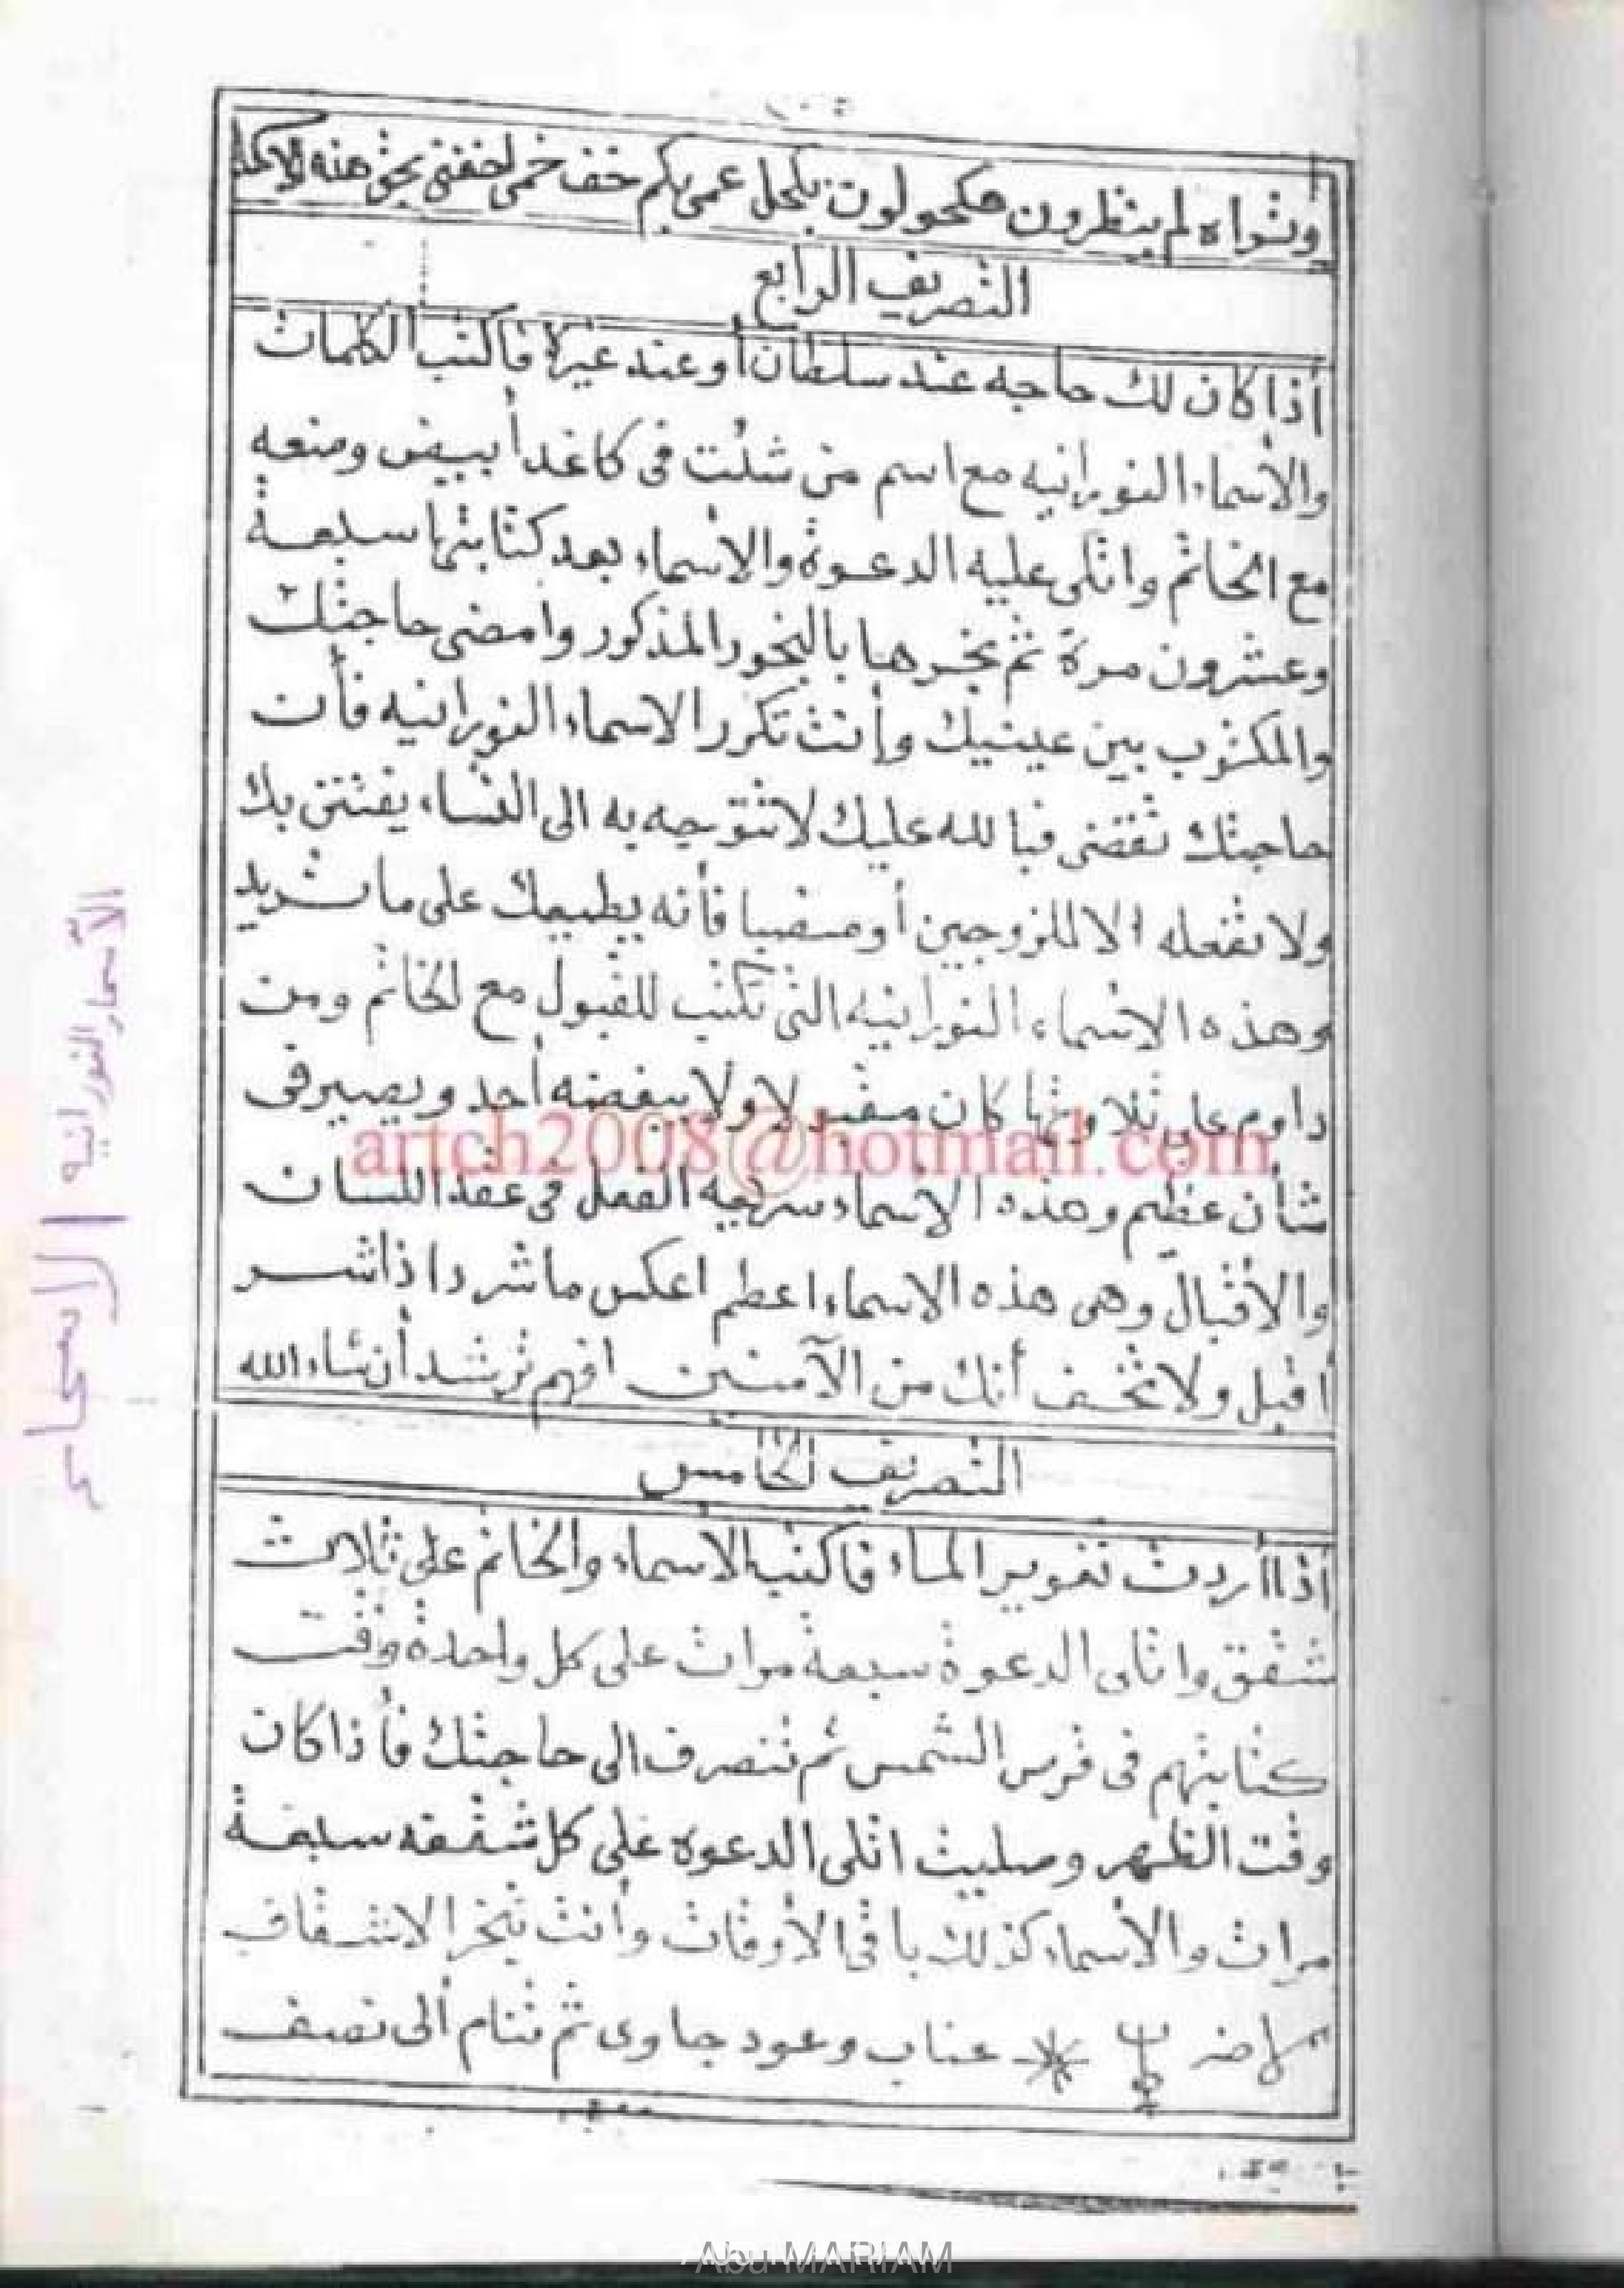 وتراه لم ينظرون مكحولون بكحل عمى بكم خف خمى بحق هذه
التصريف الرابع
أذا كان لك حاجه عند سلطان أو عند غيرة فاكتب الكلمات
والأسماء النورانيه مع اسم من شئت فى كاغد أبيض وضعه
مع الخاتم واتلى عليه الدعوة والاسماء بعد كتابتها سبعة
وعشرون مرة ثم بخرها بالبخور المذكور وامضى حاجتك
والمكتوب بين عينيك وأنت تكرر الاسماء النورانيه فأن
حاجتك تقضى فبالله عليك لا تتوجه به الى النساء يفتتن بك
ولا تفعله الا للزوجين أو فأنه يطيعك على ما تريد
وهذه الاسماء النورانيه التى تكتب للقبول مع الخاتم ومن
داوم على تلاوتها كان مقبولا ولا يبغضه أحد ويصير فى
artch2008@hotmail.com
شأن عظيم وهذه الاسماء سريعه الفعل فى عقد اللسان
والأقبال وهى هذه الاسماء اعطم اعكس ماشرد اذا شر
اقبل ولا تخف أنك من الآمنين افهم ترشد أن شاء الله
التصريف الخامس
أذا أردت تغوير الماء فاكتب الاسماء والخاتم على ثلاث
شقق واتلى الدعوة سبعة مرات على كل واحدة وقت
كتابتهم فى قرص الشمس ثم تنصرف الى حاجتك فأذا كان
وقت الظهر وصليت اتلى الدعوة على كل شقفه سبعة
مرات والأسماء كذلك باقى الأوقات وأنت تبخر الاشقاف
عناب وعود جاوى ثم تنام ألى نصف
الأسماء النورانيه
Abu MARIAM